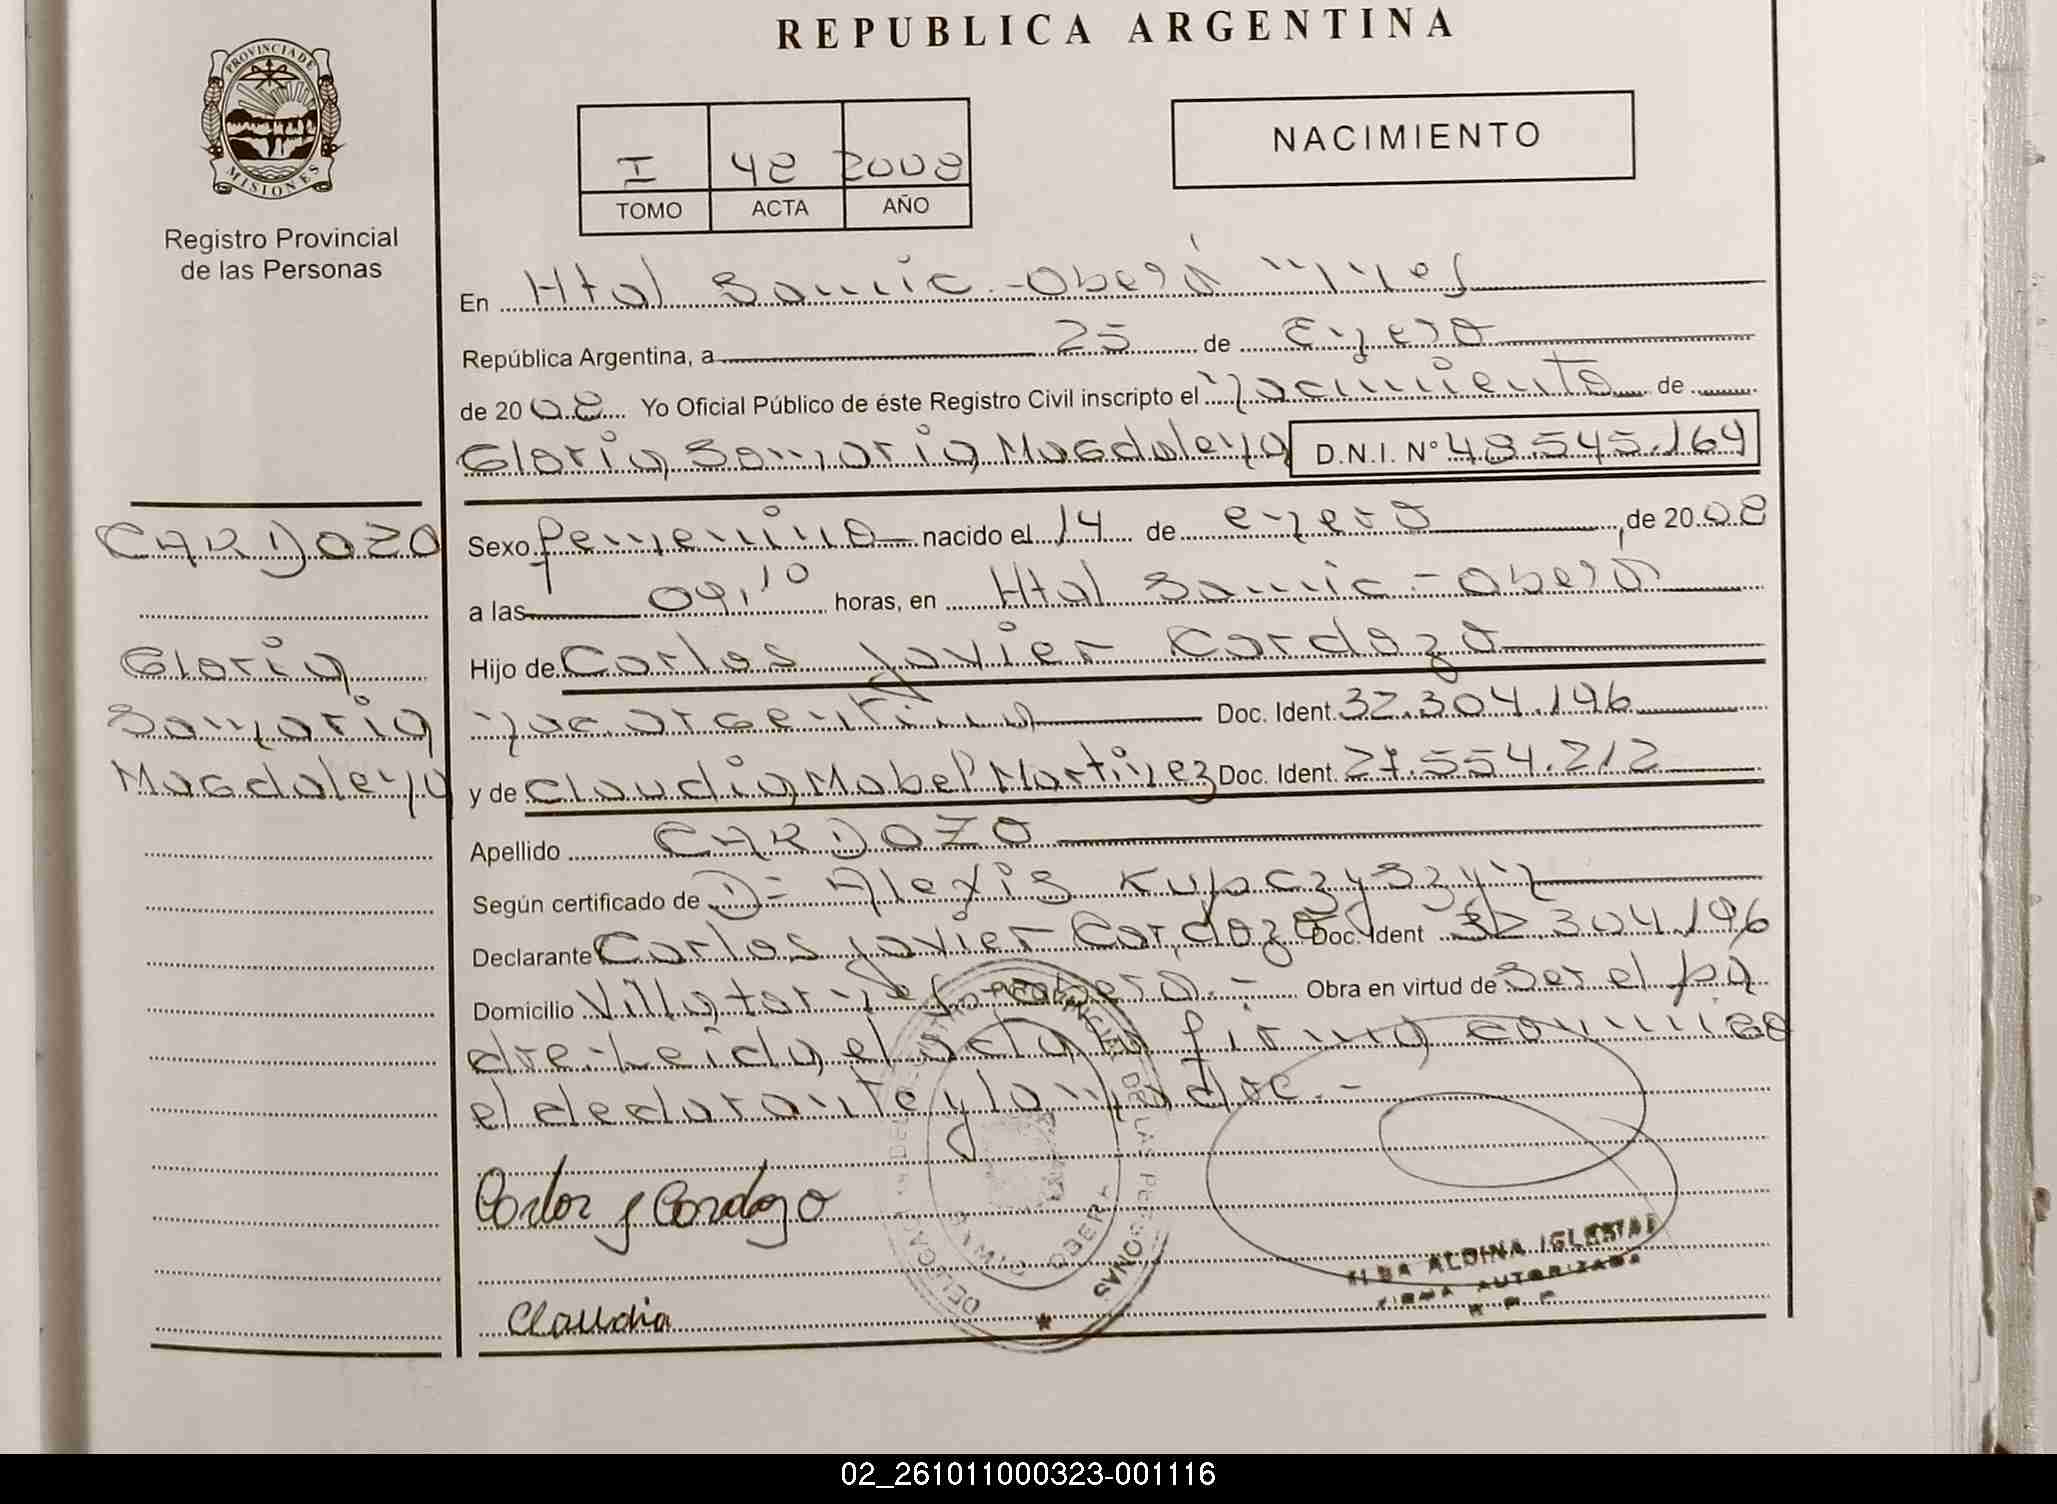 REPUBLICA ARGENTINA
PROVINCIA DE MISIONES
Registro Provincial
de las Personas
I 48 2008
TOMO ACTA AÑO
NACIMIENTO
En Htal Samic - Oberá Mnes
República Argentina, a 25 de Enero
de 2008 Yo Oficial Público de éste Registro Civil inscripto el Nacimiento de
Gloria Samaria Magdalena D.N.I. Nº 48.545.164
CARDOZO
Gloria
Samaria
Magdalena
Sexo femenino nacido el 14 de enero, de 2008
a las 09,10 horas, en Htal Samic - Oberá
Hijo de Carlos Javier Cardozo
nac. argentina Doc. Ident. 32.304.196
y de Claudia Mabel Martinez Doc. Ident. 27.554.212
Apellido CARDOZO
Según certificado de D= Alexis Kupczyszyn
Declarante Carlos Javier Cardozo Doc. Ident 32.304.196
Domicilio Villa Obera.- Obra en virtud de Ser el pa
dre.- Leida el acta la firma conmigo
el declarante y la madre.-
Carlos J Cardozo
Claudia
DELEGACION DEL REGISTRO PROVINCIAL DE LAS PERSONAS
OBERA
ELBA ALDINA IGLESIAS
FIRMA AUTORIZADA
R P P
02_261011000323-001116